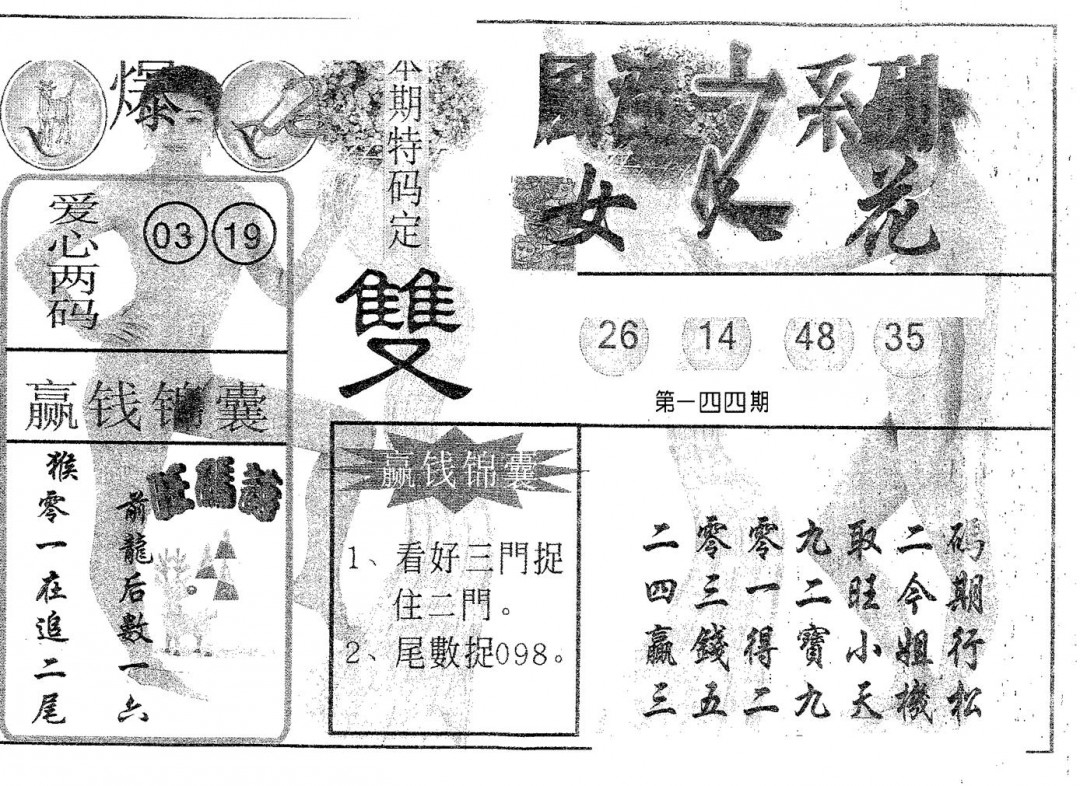 爆
本期特码定
雙
系列
女
花
爱心两码
03 19
26 14 48 35
第一四四期
赢钱锦囊
猴零一在追二尾
前龍后數一六
旺碼詩
赢钱锦囊
1、看好三門捉
住二門。
2、尾數捉098。
二零零九取二码
四三一二旺今期
贏錢得寶小姐行
三五二九天機松